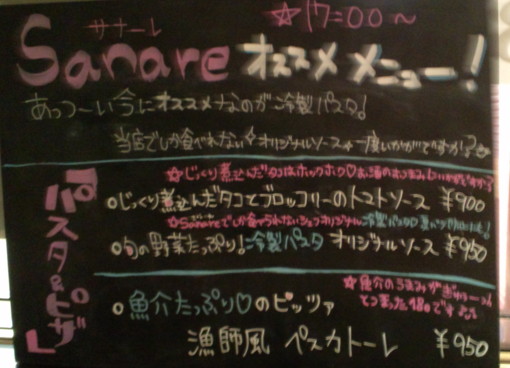 サナーレ
☆17:00〜
Sanare オススメメニュー!
あっつ〜い今にオススメなのが冷製パスタ!
当店でしか食べれないオリジナルソース 一度いかがですか?
『パスタ&ピザ』
☆じっくり煮込んだタコはホックホク♡お酒のおつまみにいかがですか?
○じっくり煮込んだタコとブロッコリーのトマトソース ¥900
☆Sanareでしか食べられないシェフオリジナル冷製パスタ
○旬の野菜たっぷり!冷製パスタ オリジナルソース ¥950
☆魚介のうまみがぎゅーっと
つまった1品です♪
○魚介たっぷり♡のピッツァ
漁師風 ペスカトーレ ¥950